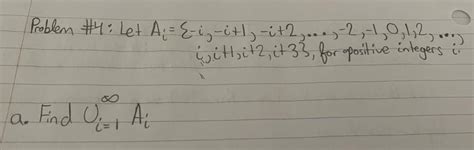 Problem #4: Let Aᵢ = {-i, -i+1, -i+2, ..., -2, -1, 0, 1, 2, ...,
i, i+1, i+2, i+3}, for positive integers i.
a. Find ∪_{i=1}^{∞} Aᵢ